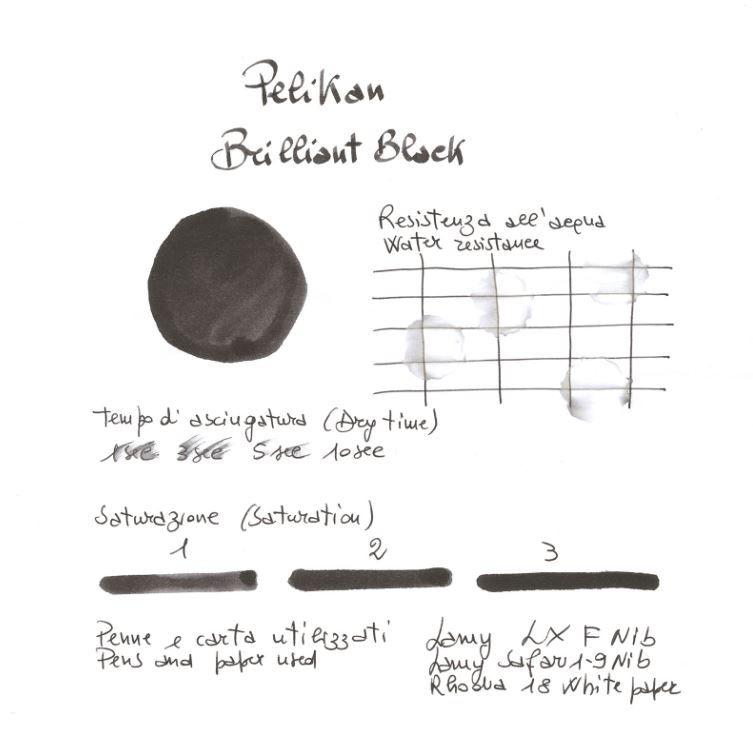 Pelikan
Brilliant Black
Resistenza all'acqua
Water resistance
Tempo d'asciugatura (Dry time)
1sec 3sec 5sec 10sec
Saturazione (Saturation)
1 2 3
Penne e carta utilizzati
Pens and paper used
Lamy LX F Nib
Lamy Safari 1.9 Nib
Rhodia 18 White paper